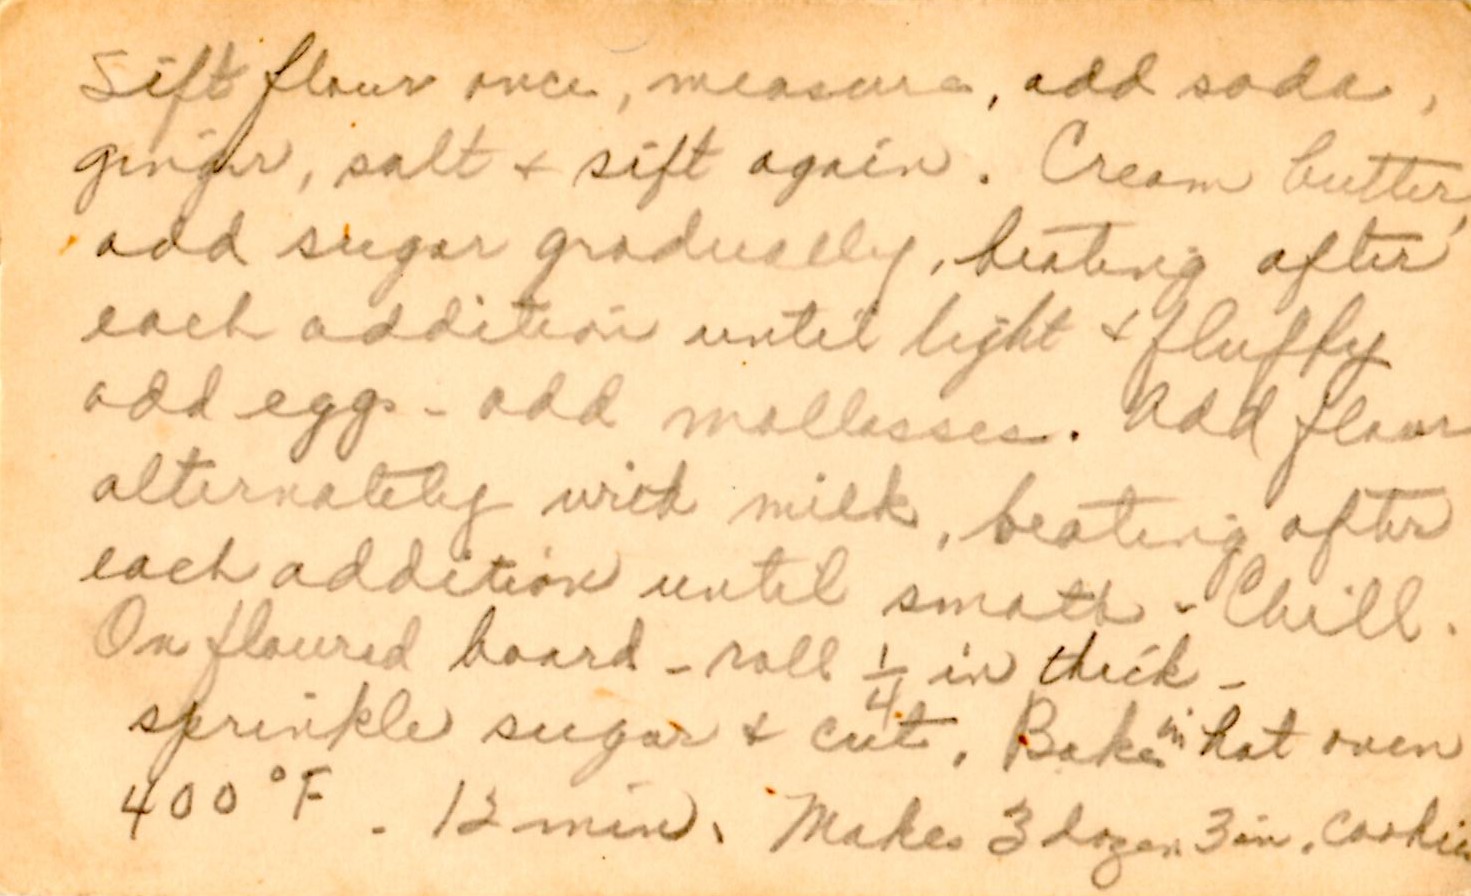 Sift flour once, measure, add soda,
ginger, salt + sift again. Cream butter,
add sugar gradually, beating after
each addition until light + fluffy
add eggs - add mollasses. Add flour
alternately with milk, beating after
each addition until smooth - Chill.
On floured board - roll 1/4 in thick -
sprinkle sugar + cut. Bake in hot oven
400°F - 12 min. Makes 3 dozen 3 in. cookies